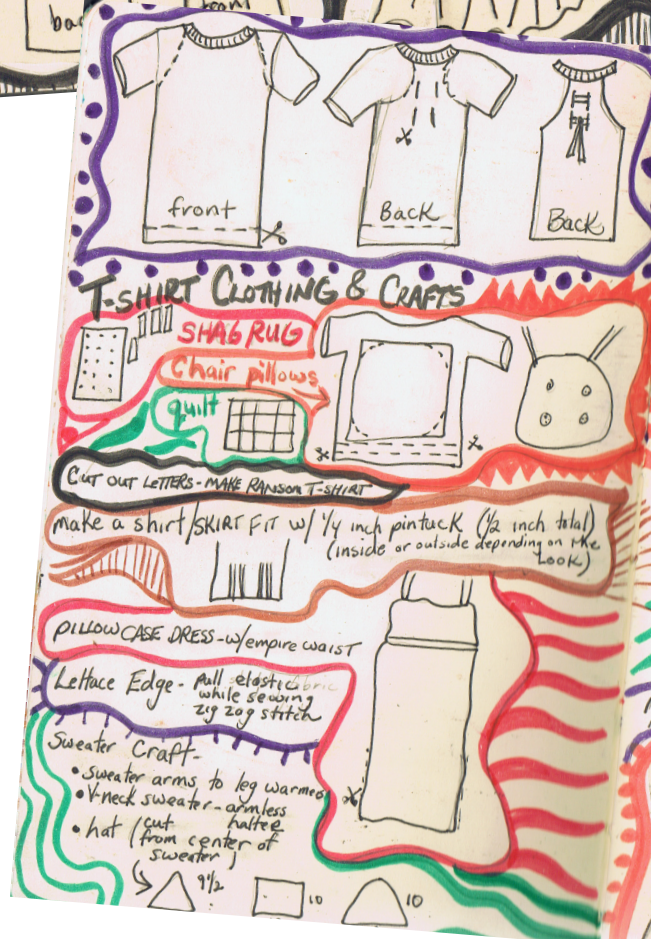 back
front
front
Back
Back
T-SHIRT CLOTHING & CRAFTS
SHAG RUG
Chair pillows
quilt
CUT OUT LETTERS - MAKE RANSOM T-SHIRT
make a shirt/SKIRT FIT w/ 1/4 inch pintuck (1/2 inch total)
(inside or outside depending on the
LOOK)
PILLOWCASE DRESS - w/empire waist
Lettace Edge - pull elastic fabric
while sewing
zig zag stitch
Sweater Craft -
• sweater arms to leg warmers
• V-neck sweater - armless
halter
• hat (cut
from center of
sweater)
9 1/2
10
10